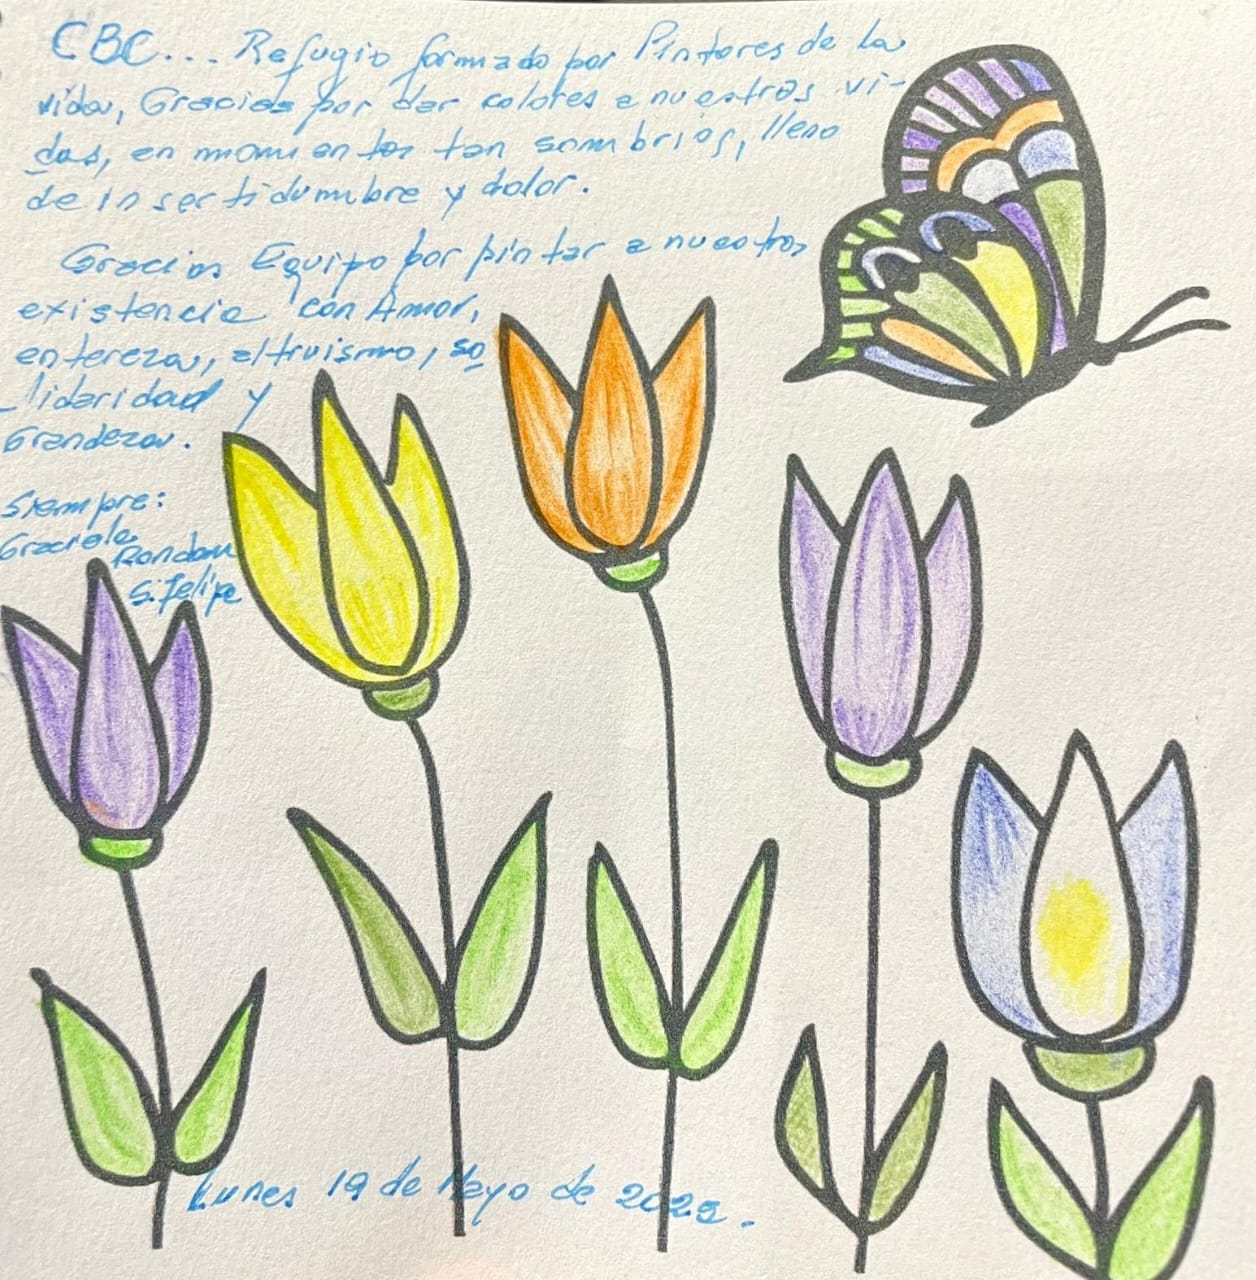 CBC... Refugio formado por Pintores de la
vida, Gracias por dar colores a nuestras vi-
das, en momentos tan sombrios, lleno
de insertidumbre y dolor.
Gracias Equipo por pintar a nuestras
existencia con Amor,
entereza, altruismo, so
-lidaridad y
Grandeza.
Siempre:
Graciela
Rondam
S. Felipe
Lunes 19 de Mayo de 2025.